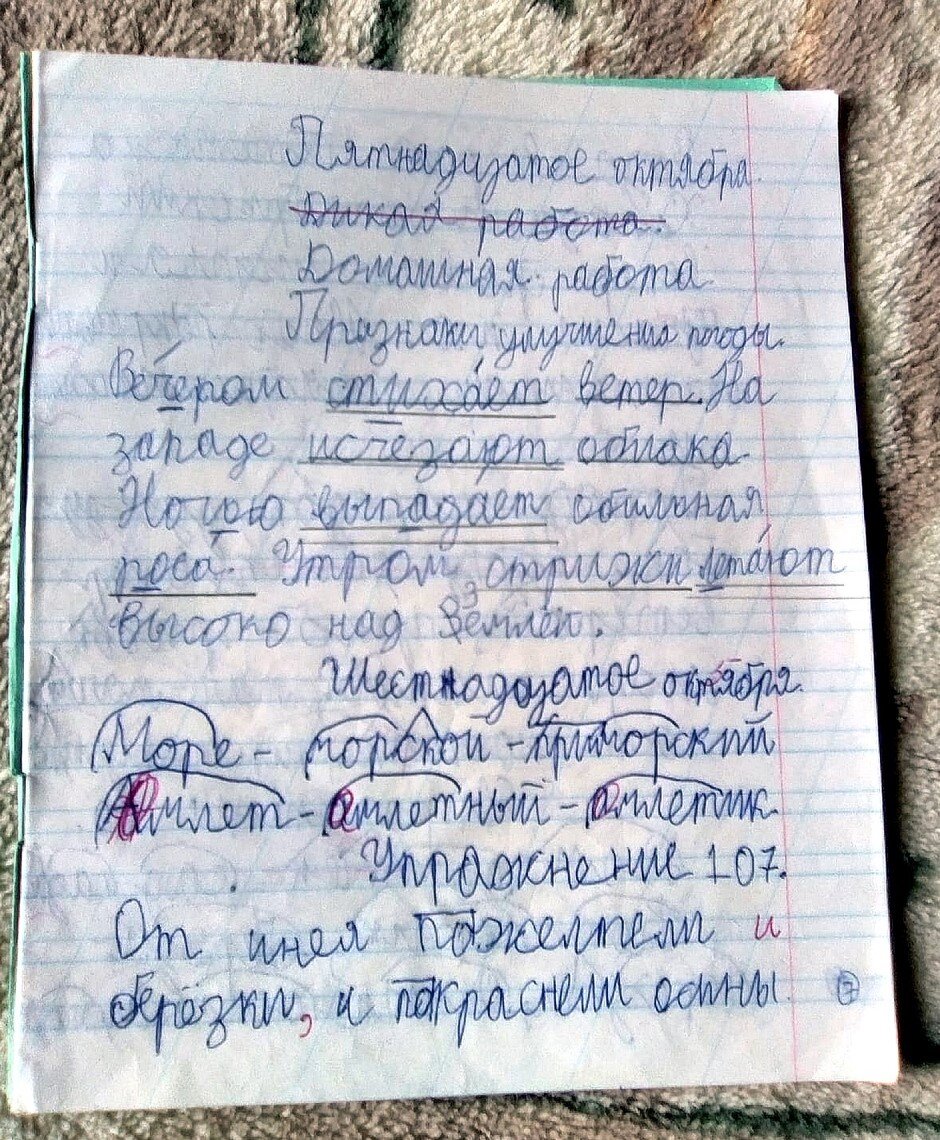 Пятнадцатое октября.
Дикая работа.
Домашная работа.
Признаки улучшения погоды.
Вечером стихает ветер. На
западе исчезают облака.
Ночью выпадает обильная
роса. Утром стрижи летают
высоко над Землёй.
Шестнадцатое октября.
Море - морской - приморский
Омлет - омлетный - омлетик.
Упражнение 107.
От инея пожелтели и
берёзки, и покраснели осины.